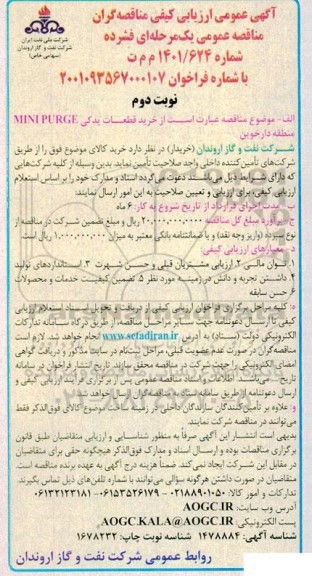 آگهی عمومی ارزیابی کیفی مناقصه‌گران
مناقصه عمومی یک‌مرحله‌ای فشرده
شماره ۱۴۰۱/۶۲۴ م م ت
با شماره فراخوان ۲۰۰۱۰۹۳۵۶۷۰۰۰۱۰۷
شرکت ملی نفت ایران
شرکت نفت و گاز اروندان
(سهامی خاص)
نوبت دوم
الف- موضوع مناقصه عبارت است از خرید قطعات یدکی MINI PURGE
منطقه دارخوین
شرکت نفت و گاز اروندان (خریدار) در نظر دارد خرید کالای موضوع فوق را از طریق
شرکت‌های تأمین‌کننده داخلی واجد صلاحیت تأمین نماید. بدین وسیله از کلیه شرکت‌هایی
که دارای شرایط ذیل می‌باشند دعوت می‌گردد اسناد و مدارک خود را بر اساس استعلام
ارزیابی کیفی، برای ارزیابی و تعیین صلاحیت به این امور ارسال نمایند:
ب- مدت اجرای قرارداد از تاریخ شروع به کار: ۶ ماه
ج- برآورد مبلغ کل مناقصه ۲۰.۰۰۰.۰۰۰.۰۰۰ ریال و مبلغ تضمین شرکت در مناقصه از
نوع سپرده (واریز وجه نقد) و یا ضمانتنامه بانکی معتبر به میزان ۱.۰۰۰.۰۰۰.۰۰۰ ریال است.
د- معیارهای ارزیابی کیفی:
۱. توان مالی ۲. ارزیابی مشتریان قبلی و حسن شهرت ۳. استانداردهای تولید
۴. داشتن تجربه و دانش در زمینه مورد نظر ۵. تضمین کیفیت خدمات و محصولات
۶. حسن سابقه
ه: کلیه مراحل برگزاری فراخوان ارزیابی کیفی از دریافت و تحویل اسناد استعلام ارزیابی
کیفی تا ارسال دعوتنامه جهت سایر مراحل مناقصه، از طریق درگاه سامانه تدارکات
الکترونیکی دولت (ستاد) به آدرس www.setadiran.ir انجام خواهد شد. لازم است
مناقصه‌گران در صورت عدم عضویت قبلی، مراحل ثبت‌نام در سایت مذکور و دریافت گواهی
امضای الکترونیکی را جهت شرکت در مناقصه محقق سازند. تاریخ انتشار فراخوان در سامانه
تاریخ می‌باشد. اطلاعات و اسناد مناقصه عمومی پس از برگزاری فرآیند ارزیابی کیفی و
ارسال دعوتنامه از طریق سامانه ستاد انجام خواهد شد.
و: علاوه بر تأمین‌کنندگان سازندگان داخلی در زمینه ساخت موضوع کالای فوق‌الذکر فقط
می‌توانند در مناقصه شرکت نمایند.
بدیهی است انتشار این آگهی صرفاً به منظور شناسایی و ارزیابی متقاضیان طبق قانون
برگزاری مناقصات بوده و ارسال اسناد و مدارک فوق‌الذکر هیچگونه حقی برای متقاضیان
در مقابل این شرکت ایجاد نمی‌کند. ضمناً هزینه درج آگهی به عهده برنده مناقصه است.
متقاضیان در صورت داشتن هرگونه سؤالی می‌توانند با شماره تلفن‌های ذیل تماس بگیرند.
تدارکات و امور کالا: ۰۲۱۸۸۹۰۱۰۵۰ - ۰۶۱۵۳۵۲۶۱۷۹ - ۰۶۱۳۲۱۲۳۱۸۱
آدرس وب سایت: AOGC.IR
پست الکترونیکی: AOGC.KALA@AOGC.IR
شناسه آگهی: ۱۴۷۸۸۸۴ شناسه نوبت چاپ: ۱۶۷۸۲۳۲
روابط عمومی شرکت نفت و گاز اروندان